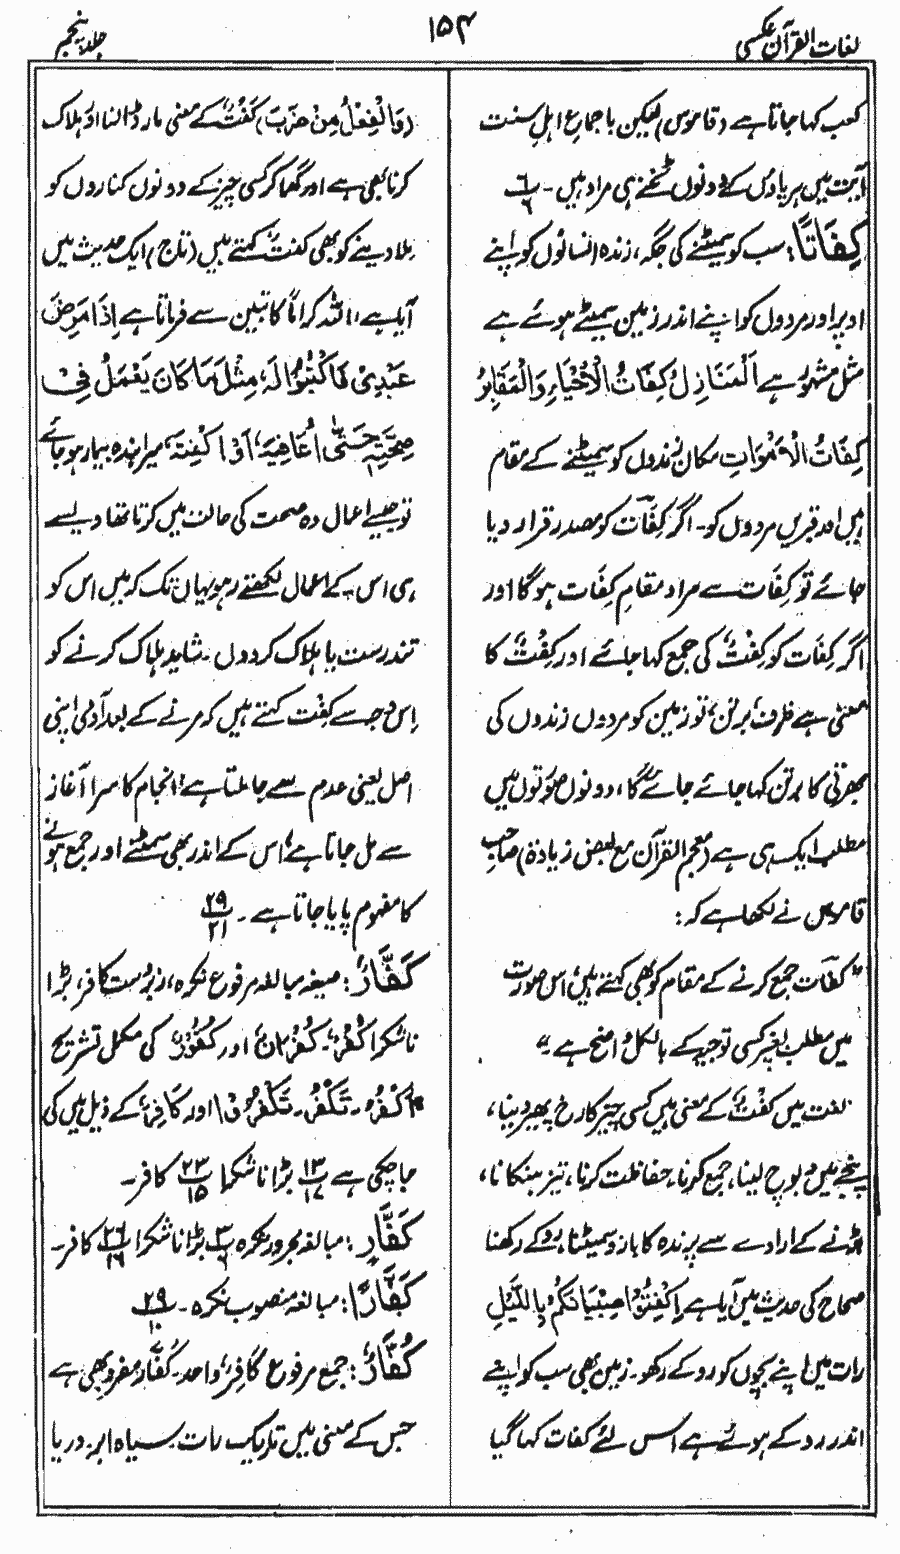 لغات القرآن عکسی
۱۵۴
جلد پنجم
کعب کہا جاتا ہے (قاموس) لیکن باجماع اہل سنت
آیت میں ہر پاؤں کے دونوں ٹخنے ہی مراد ہیں۔ ۶/۶
کِفَاتًا: سب کو سمیٹنے کی جگہ، زندہ انسانوں کو اپنے
اوپر اور مردوں کو اپنے اندر زمین سمیٹے ہوئے ہے
مثل مشہور ہے اَلْمَنَازِلُ كِفَاتُ الْاَحْيَاءِ وَالْمَقَابِرُ
كِفَاتُ الْاَمْوَاتِ مکان زندوں کو سمیٹنے کے مقام
ہیں اور قبریں مردوں کو۔ اگر کِفَات کو مصدر قرار دیا
جائے تو کِفَات سے مراد مقامِ کِفَات ہوگا اور
اگر کِفَات کو کِفْتٌ کی جمع کہا جائے اور کِفْتٌ کا
معنی ہے ظرف، برتن، تو زمین کو مردوں زندوں کی
بھرتی کا برتن کہا جائے جائے گا، دونوں صورتوں میں
مطلب ایک ہی ہے (معجم القرآن مع بعض زیادۃ) صاحب
قاموس نے لکھا ہے کہ:
"کفات جمع کرنے کے مقام کو بھی کہتے ہیں، اس صورت
میں مطلب بغیر کسی توجیہ کے بالکل واضح ہے"
لغت میں کَفْتٌ کے معنی ہیں کسی چیز کا رخ پھیر دینا،
پنجے میں دبوچ لینا، جمع کرنا، حفاظت کرنا، تیز ہنکانا،
اڑنے کے ارادے سے پرندہ کا بازو سمیٹنا، روکے رکھنا
صحاح کی حدیث میں آیا ہے اِكْفِتُوْا صِبْيَانَكُمْ بِاللَّيْلِ
رات میں اپنے بچوں کو روکے رکھو۔ زمین بھی سب کو اپنے
اندر روکے ہوئے ہے اس لئے کفات کہا گیا
(وَالْفِعْلُ مِنْ ضَرَبَ) کَفْتٌ کے معنی مار ڈالنا اور ہلاک
کرنا بھی ہے اور گھما کر کسی چیز کے دونوں کناروں کو
ملا دینے کو بھی کفت کہتے ہیں (تاج) ایک حدیث میں
آیا ہے، اللہ کراماً کاتبین سے فرماتا ہے اِذَا مَرِضَ
عَبْدِيْ فَاكْتُبُوْا لَهٗ مِثْلَ مَا كَانَ يَعْمَلُ فِيْ
صِحَّتِهٖ حَتّٰى اُعَافِيَهٗ اَوْ اَكْفِتَهٗ میرا بندہ بیمار ہوجائے
تو جیسے اعمال وہ صحت کی حالت میں کرتا تھا ویسے
ہی اس کے اعمال لکھتے رہو یہاں تک کہ میں اس کو
تندرست یا ہلاک کردوں۔ شاید ہلاک کرنے کو
اس وجہ سے کفت کہتے ہیں کہ مرنے کے بعد آدمی اپنی
اصل یعنی عدم سے جا ملتا ہے، انجام کا سرا آغاز
سے مل جاتا ہے، اس کے اندر بھی سمٹنے اور جمع ہونے
کا مفہوم پایا جاتا ہے۔ ۲۹/۲۱
کَفَّارٌ: صیغہ مبالغہ مرفوع نکرہ، زبردست کافر، بڑا
ناشکرا کُفْرٌ۔ کُفْرَانٌ اور کُفُوْرٌ کی مکمل تشریح
اَکْفُرُ۔ تَکْفُرُ۔ تَکْفُرُوْنَ اور کَافِرٌ کے ذیل میں کی
جاچکی ہے ۱۳/۱۷ بڑا ناشکرا ۲۳/۱۵ کافر۔
کَفَّارٍ: مبالغہ مجرور نکرہ ۳/۶ بڑا ناشکرا ۲۶/۱۶ کافر۔
کَفَّارًا: مبالغہ منصوب نکرہ۔ ۲۹/۱۰
کُفَّارٌ: جمع مرفوع کَافِرٌ واحد۔ کُفَّارٌ مفرد بھی ہے
جس کے معنی ہیں تاریک رات۔ سیاہ ابر۔ دریا